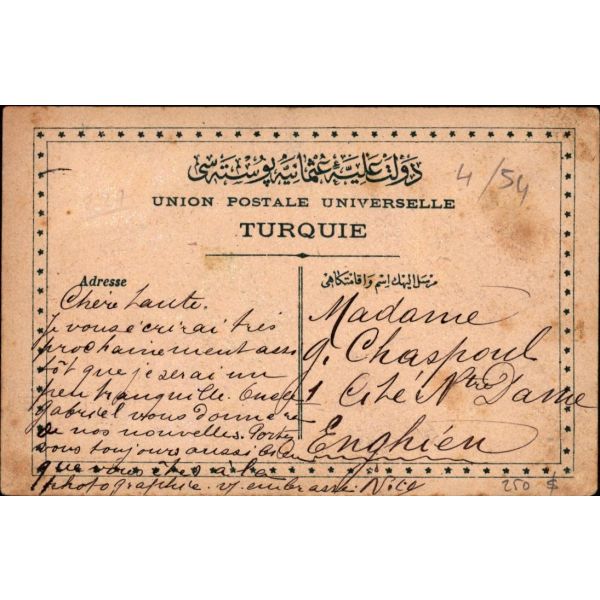 دولت علیهٔ عثمانیه پوسته سی
4/54
UNION POSTALE UNIVERSELLE
TURQUIE
Adresse
Chère tante.
Je vous écrirai très
prochainement auss
tôt que je serai un
peu tranquille. Oncle
Gabriel vous donnera
de nos nouvelles. Portez
vous toujours aussi bien
que vous êtes à la
photographie. v. embrasse.
مرسل الیهك اسم و اقامتكاهی
Madame
g. Chaspoul
1 Cité Ntre Dame
Enghien
250 $